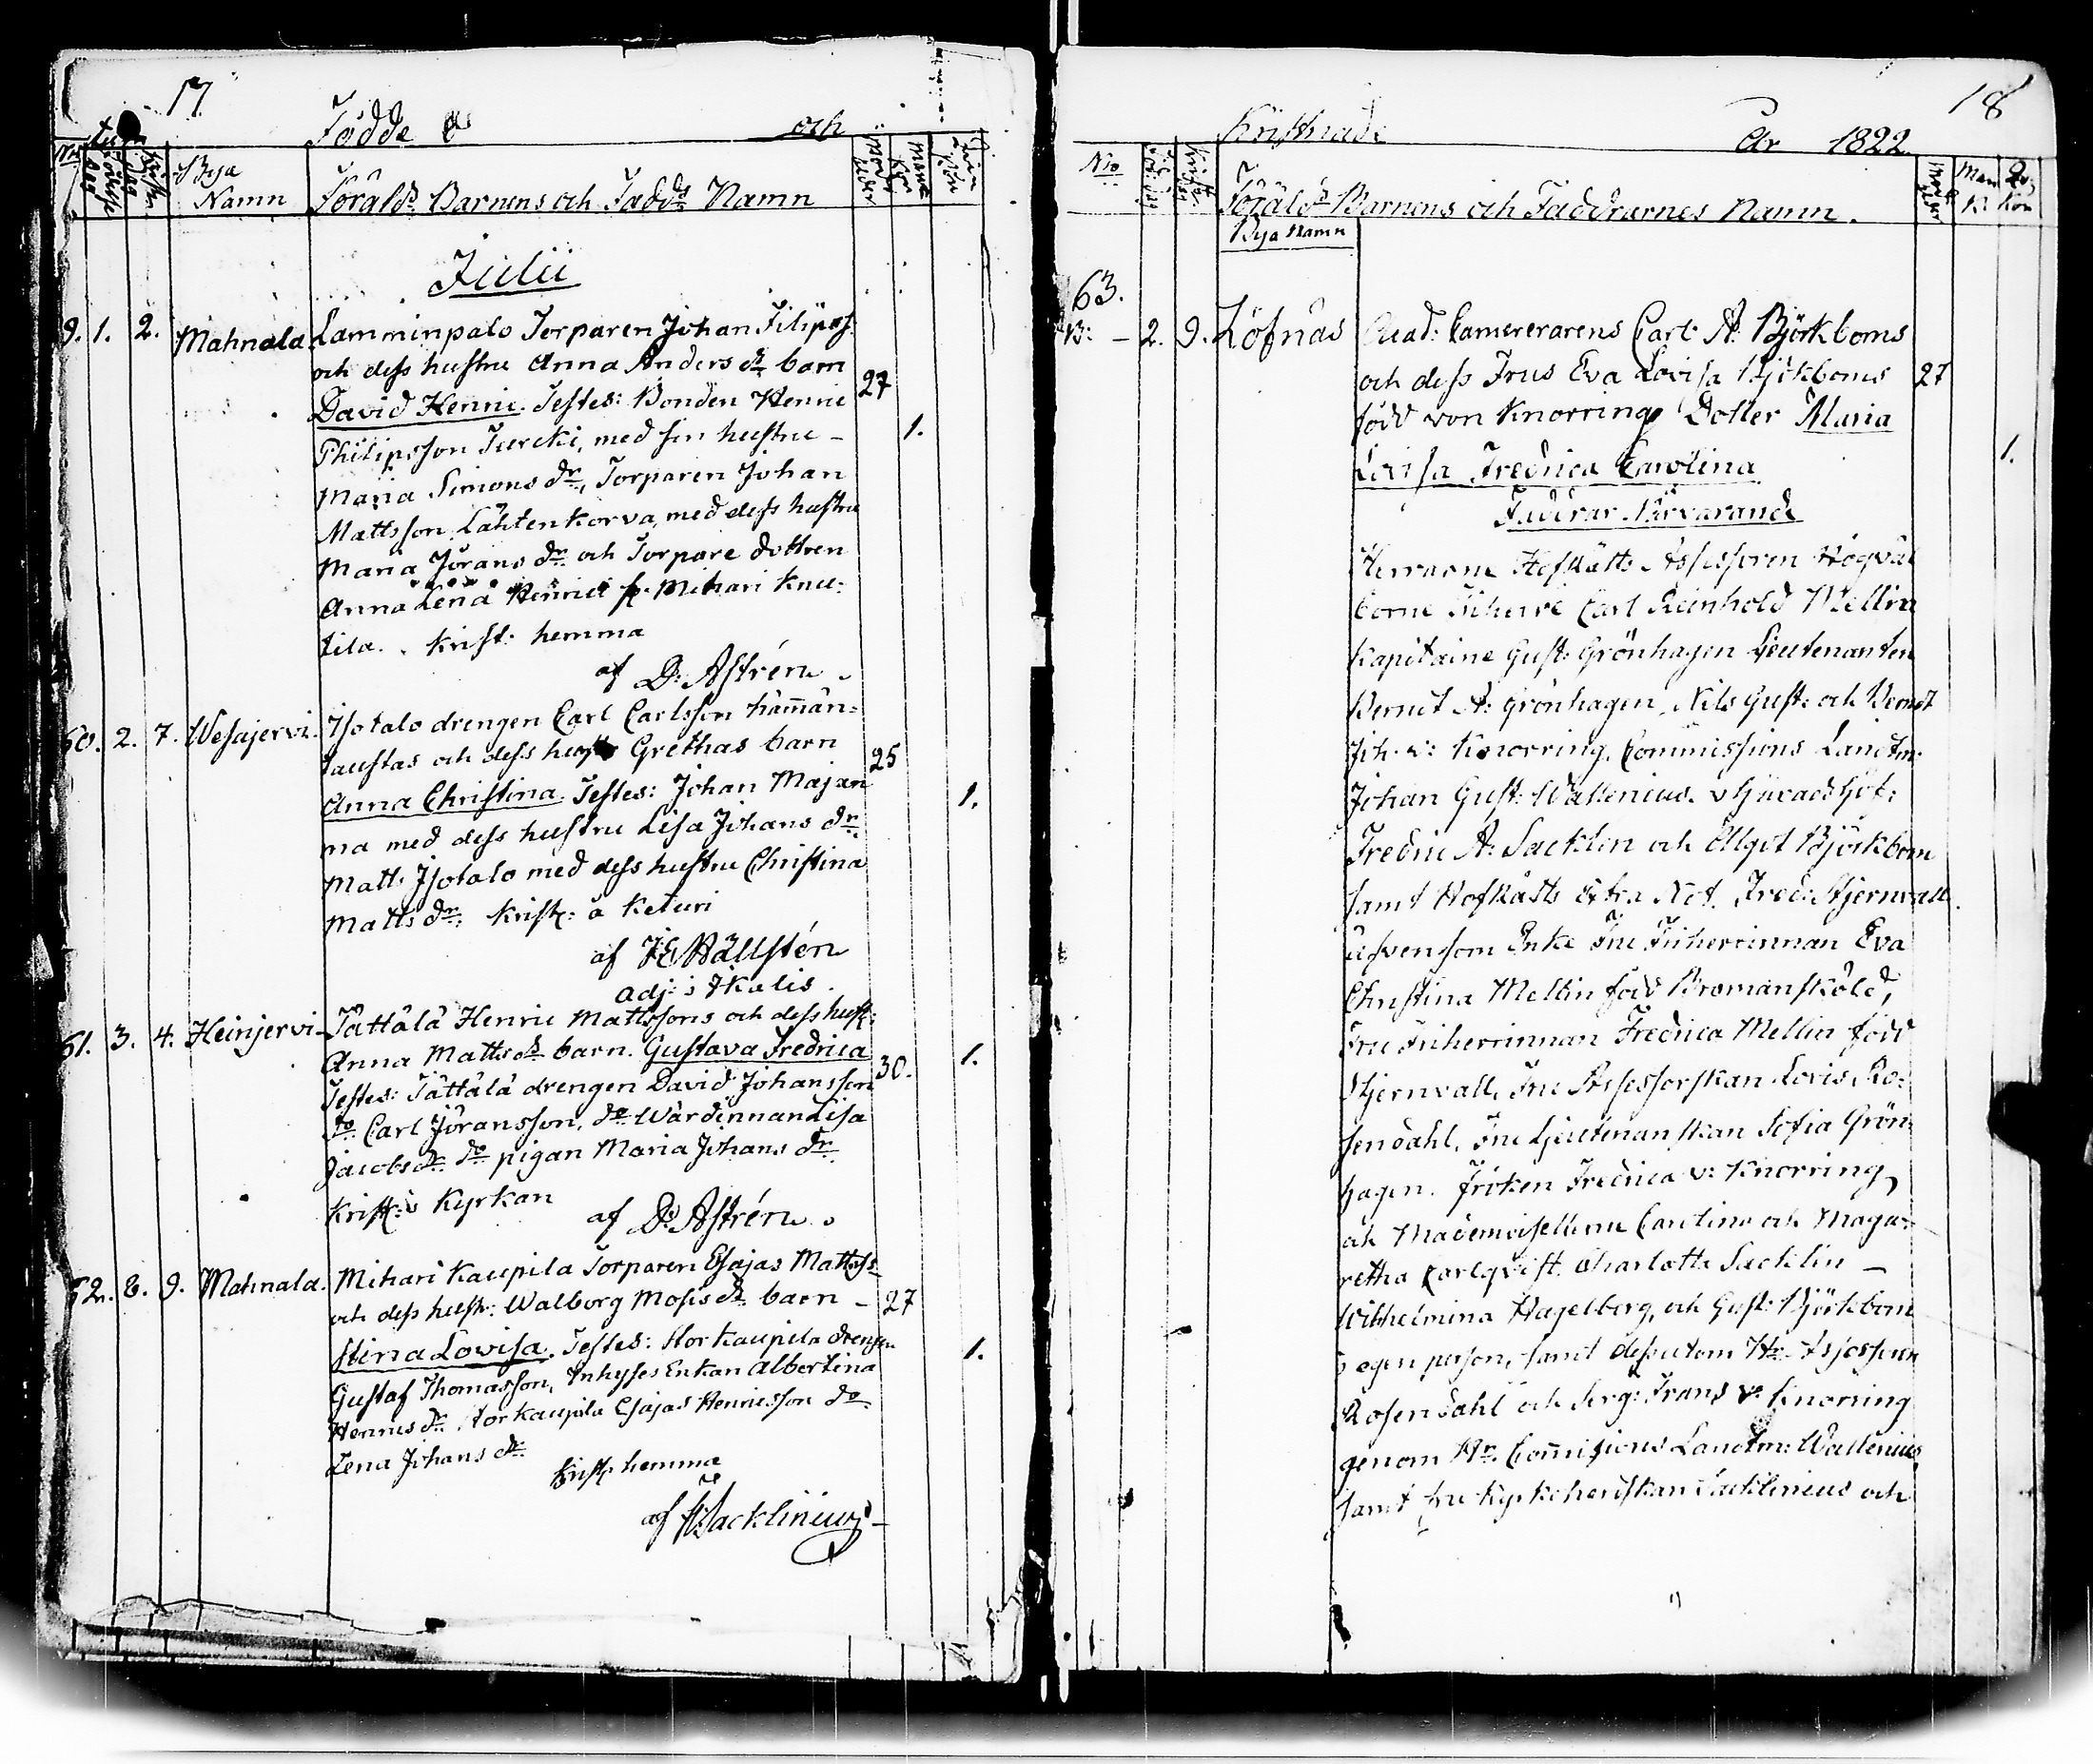 17
Födde
och
Byja
Namn
Föräld:s Barnens och Fadd:s Namn
Julii
9. 1. 2. Mahnala Lamminpalo Torparen Johan Filipss.
och dess hustru Anna Anders dr barn
David Henric. Testes: Bonden Henric 27
Philipsson Turcki, med sin hustru – 1.
Maria Simons dr, Torparen Johan
Mattsson Lähtenkorva, med dess hustru
Maria Jörans dr och Torpare dottren
Anna Lena Henrics fr. Mihari Knu-
tila. Krist: hemma
af D: Astrén.
60. 2. 7. Wesajervi. Isotalo drengen Carl Carlsson hämän-
taustas och dess hustr Grethas barn 25
Anna Christina. Testes: Johan Majan 1.
ma med dess hustru Lisa Johans dr.
Matts Isotalo med dess hustru Christina
Matts dr. Krist: å Keturi
af J E Hällstén
adj: i Ikalis.
61. 3. 4. Heinjervi Tättälä Henric Mattssons och dess hust:
Anna Matts dr barn. Gustava Fredrica 30. 1.
Testes: Tättälä drengen David Johansson
do Carl Jöransson, do Wärdinnan Lisa
Jacobs dr do pigan Maria Johans dr.
Krist: i Kyrkan
af D: Astrén.
62. 8. 9. Mahnala. Mihari Kaupila Torparen Esajas Mattss–
och dess hustr: Walborg Mosis dr barn – 27
Stina Lovisa. Testes: Storkaupila drengen 1.
Gustaf Thomasson, Inhyses Enkan Albertina
Henrics dr Storkaupila Esajas Henricsson do
Lena Johans dr
Krist: hemma
af Sacklinius
18
Kristnade
År 1822
Nro
Föräld:s Barnens och Faddrarnes Namn.
Bya Namn
63.
B: – 2. 9. Löfnäs Cam̄ererarens Carl A: Björkboms
och dess Frus Eva Lovisa Björkboms 27
född von Knorring Dotter Maria 1.
Lovisa Fredrica Carolina
Faddrar Närvarande
Herrarne HofRätts Assessoren Högväl
borne Friherre Carl Reinhold Mellin
Kapitaine Gust: Grönhagen Lieutenanten
Berndt A: Grönhagen, Nils Gust: och Berndt
Joh. v: Knorring, Commissions Landtm:
Johan Gust: Wallenius.
Fredric A: Sacklen och Allgot Björkbom
samt HofRätts Extra Not. Fred: Stjernvall.
äfvensom Enke Fru Friherrinnan Eva
Christina Mellin född Bromansköld,
Fru Friherrinnan Fredrica Mellin född
Stjernvall, Fru Assessorskan Lovis Ro-
sendahl, Fru Lieutenanskan Sofia Grön-
hagen. Fröken Fredrica v: Knorring
och Mademoisellerne Carolina och Marga-
retha Carlqvist. Charlotta Sacklin –
Wilhelmina Hagelberg, och Gust: Björkbom
i egen person, samt dessutom Hr Assessoren
Rosendahl och Serg: Frans v: Knorring
genom Hr Commissions Landtm: Wallenius
samt fru Kyrkoherdskan Sacklinius och